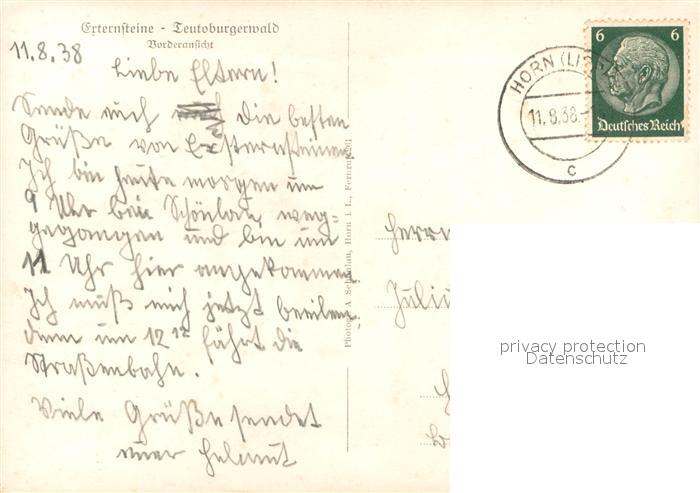 Externsteine - Teutoburgerwald
Vorderansicht
11.8.38
Liebe Eltern!
Sende euch die besten
Grüße von Externsteinen
Ich bin heute morgen um
9 Uhr beim Schönlau weg-
gegangen und bin um
11 Uhr hier angekommen.
Ich muß mich jetzt beeilen,
denn um 12 12 fährt die
Straßenbahn.
Viele Grüße sendet
euer Helmut
Photogr. A. Schönlau, Horn i. L., Fernruf 261
HORN (LIPPE)
11.8.38.-
c
6 6
Deutsches Reich
Herrn
Juliu
privacy protection
Datenschutz